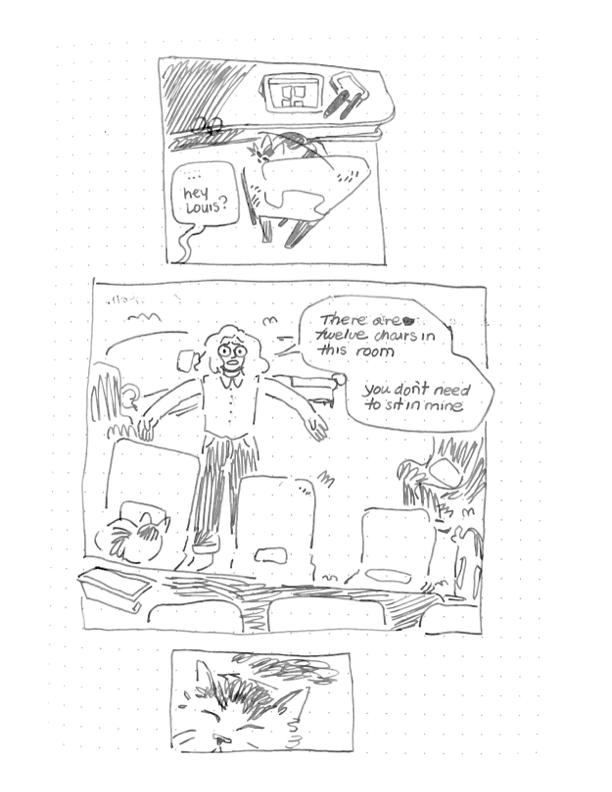 ...
hey
Louis?
There are
twelve chairs in
this room
you don't need
to sit in mine